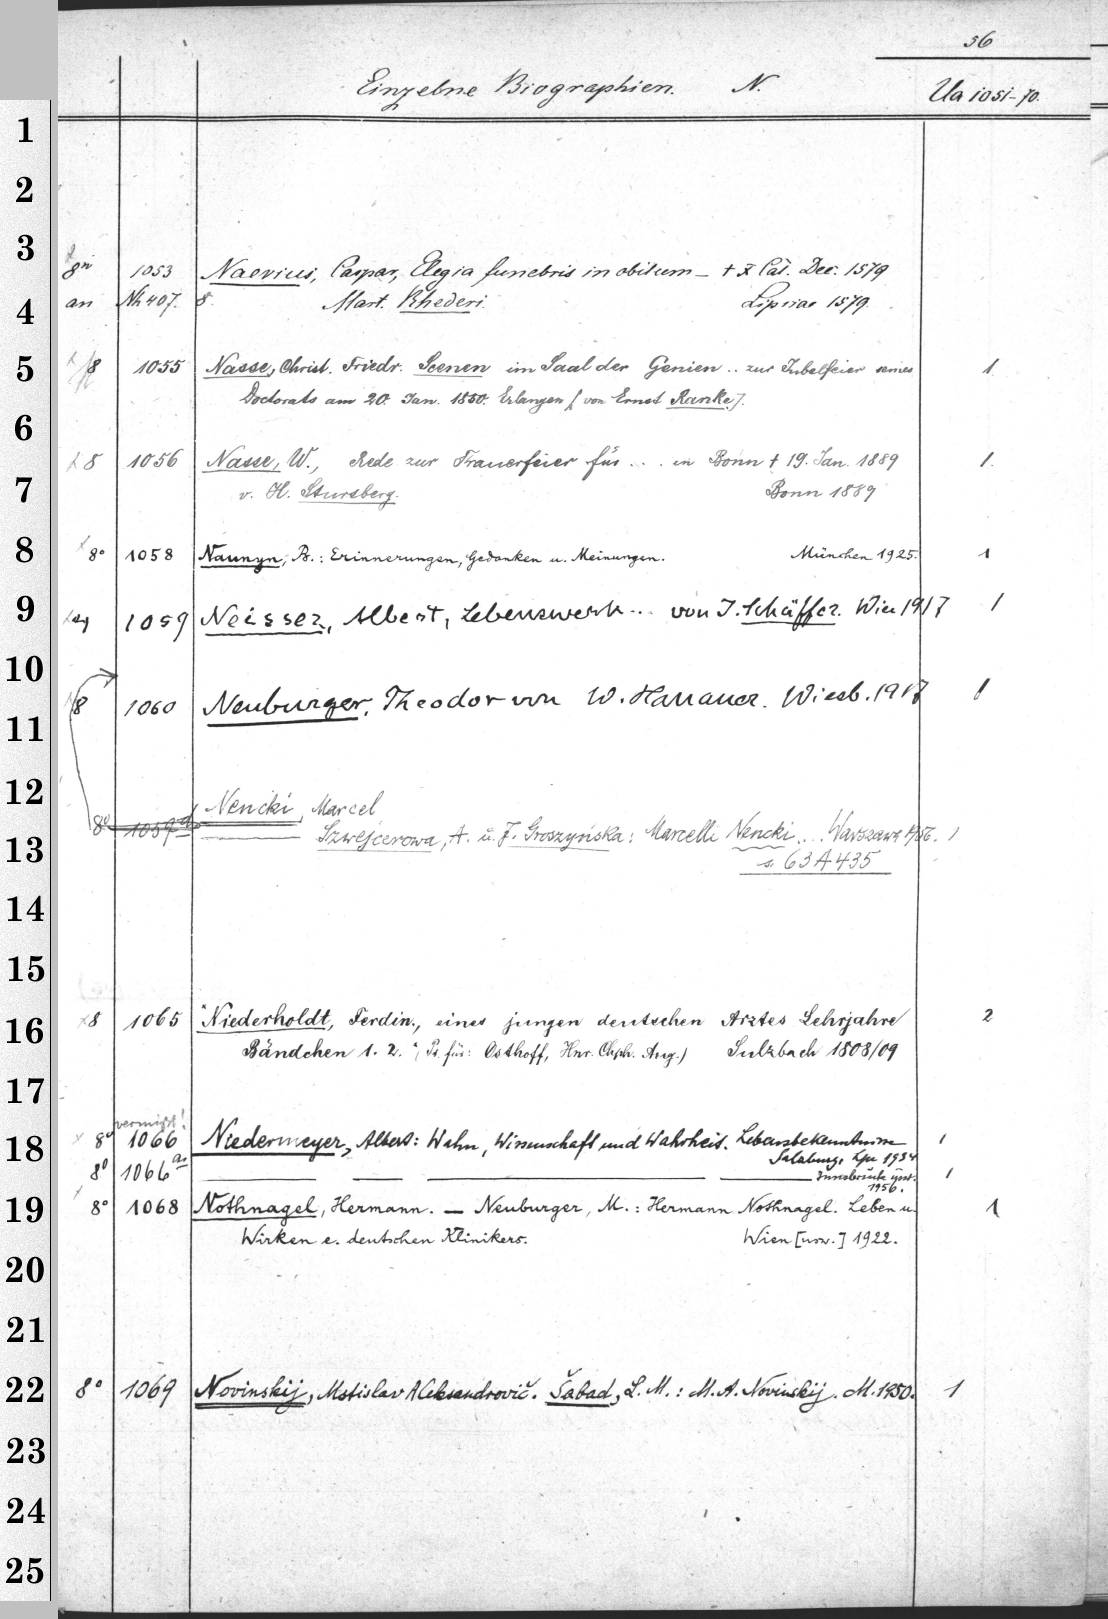 56
Einzelne Biographien. N. Ua 1051-70.
1
2
3
8° 1053 Naevius, Caspar, Elegia funebris in obitum — † X Cal. Dec. 1579
4
an Nr. 407. 8. Mart. Rhederi. Lipsiae 1579.
5
8 1055 Nasse, Christ. Friedr. Scenen im Saal der Genien .. zur Jubelfeier seines 1
Doctorats am 20. Jan. 1850. Erlangen [von Ernst Ranke].
6
8 1056 Nasse, W., Rede zur Trauerfeier für ... in Bonn † 19. Jan. 1889 1.
7
v. H. Stursberg. Bonn 1889
8
8° 1058 Naunyn, B.: Erinnerungen, Gedanken u. Meinungen. München 1925. 1
9
1059 Neisser, Albert, Lebenswerk ... von J. Schäffer. Wien 1917 1
10
8 1060 Neuburger, Theodor von W. Hanauer. Wiesb. 1917 1
11
12
Nencki, Marcel
8° 1059a
13
Szwejcerowa, A. u. J. Groszyńska: Marcelli Nencki... Warszawa 1956. 1
s. 63 A 435
14
15
16
8 1065 "Niederholdt, Ferdin., eines jungen deutschen Arztes Lehrjahre 2
Bändchen 1. 2." (Ps. für: Osthoff, Hnr. Chph. Aug.) Sulzbach 1808/09
17
vermißt!
18
8° 1066 Niedermeyer, Albert: Wahn, Wissenschaft und Wahrheit. Lebensbekenntnisse 1
Salzburg, Lpz 1934
8° 1066a — — — — Innsbruck 1956. 1
19
8° 1068 Nothnagel, Hermann. — Neuburger, M.: Hermann Nothnagel. Leben u. 1
Wirken e. deutschen Klinikers. Wien [usw.] 1922.
20
21
22
8° 1069 Novinskij, Mstislav Aleksandrovič. Šabad, L. M.: M. A. Novinskij. M. 1950. 1
23
24
25